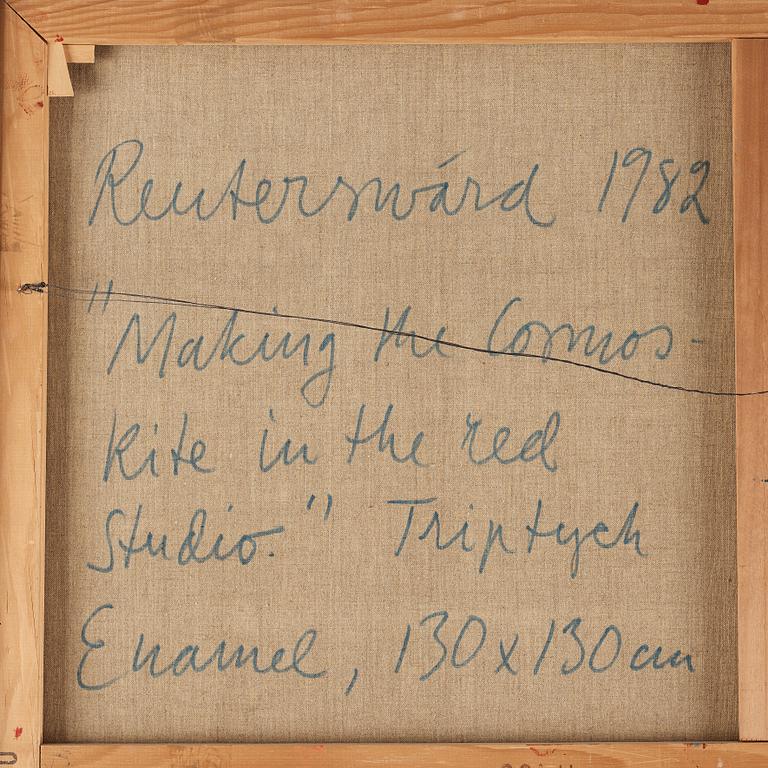 Reuterswärd 1982
"Making the Cosmos-
kite in the red
Studio." Triptych
Enamel, 130 x 130 cm